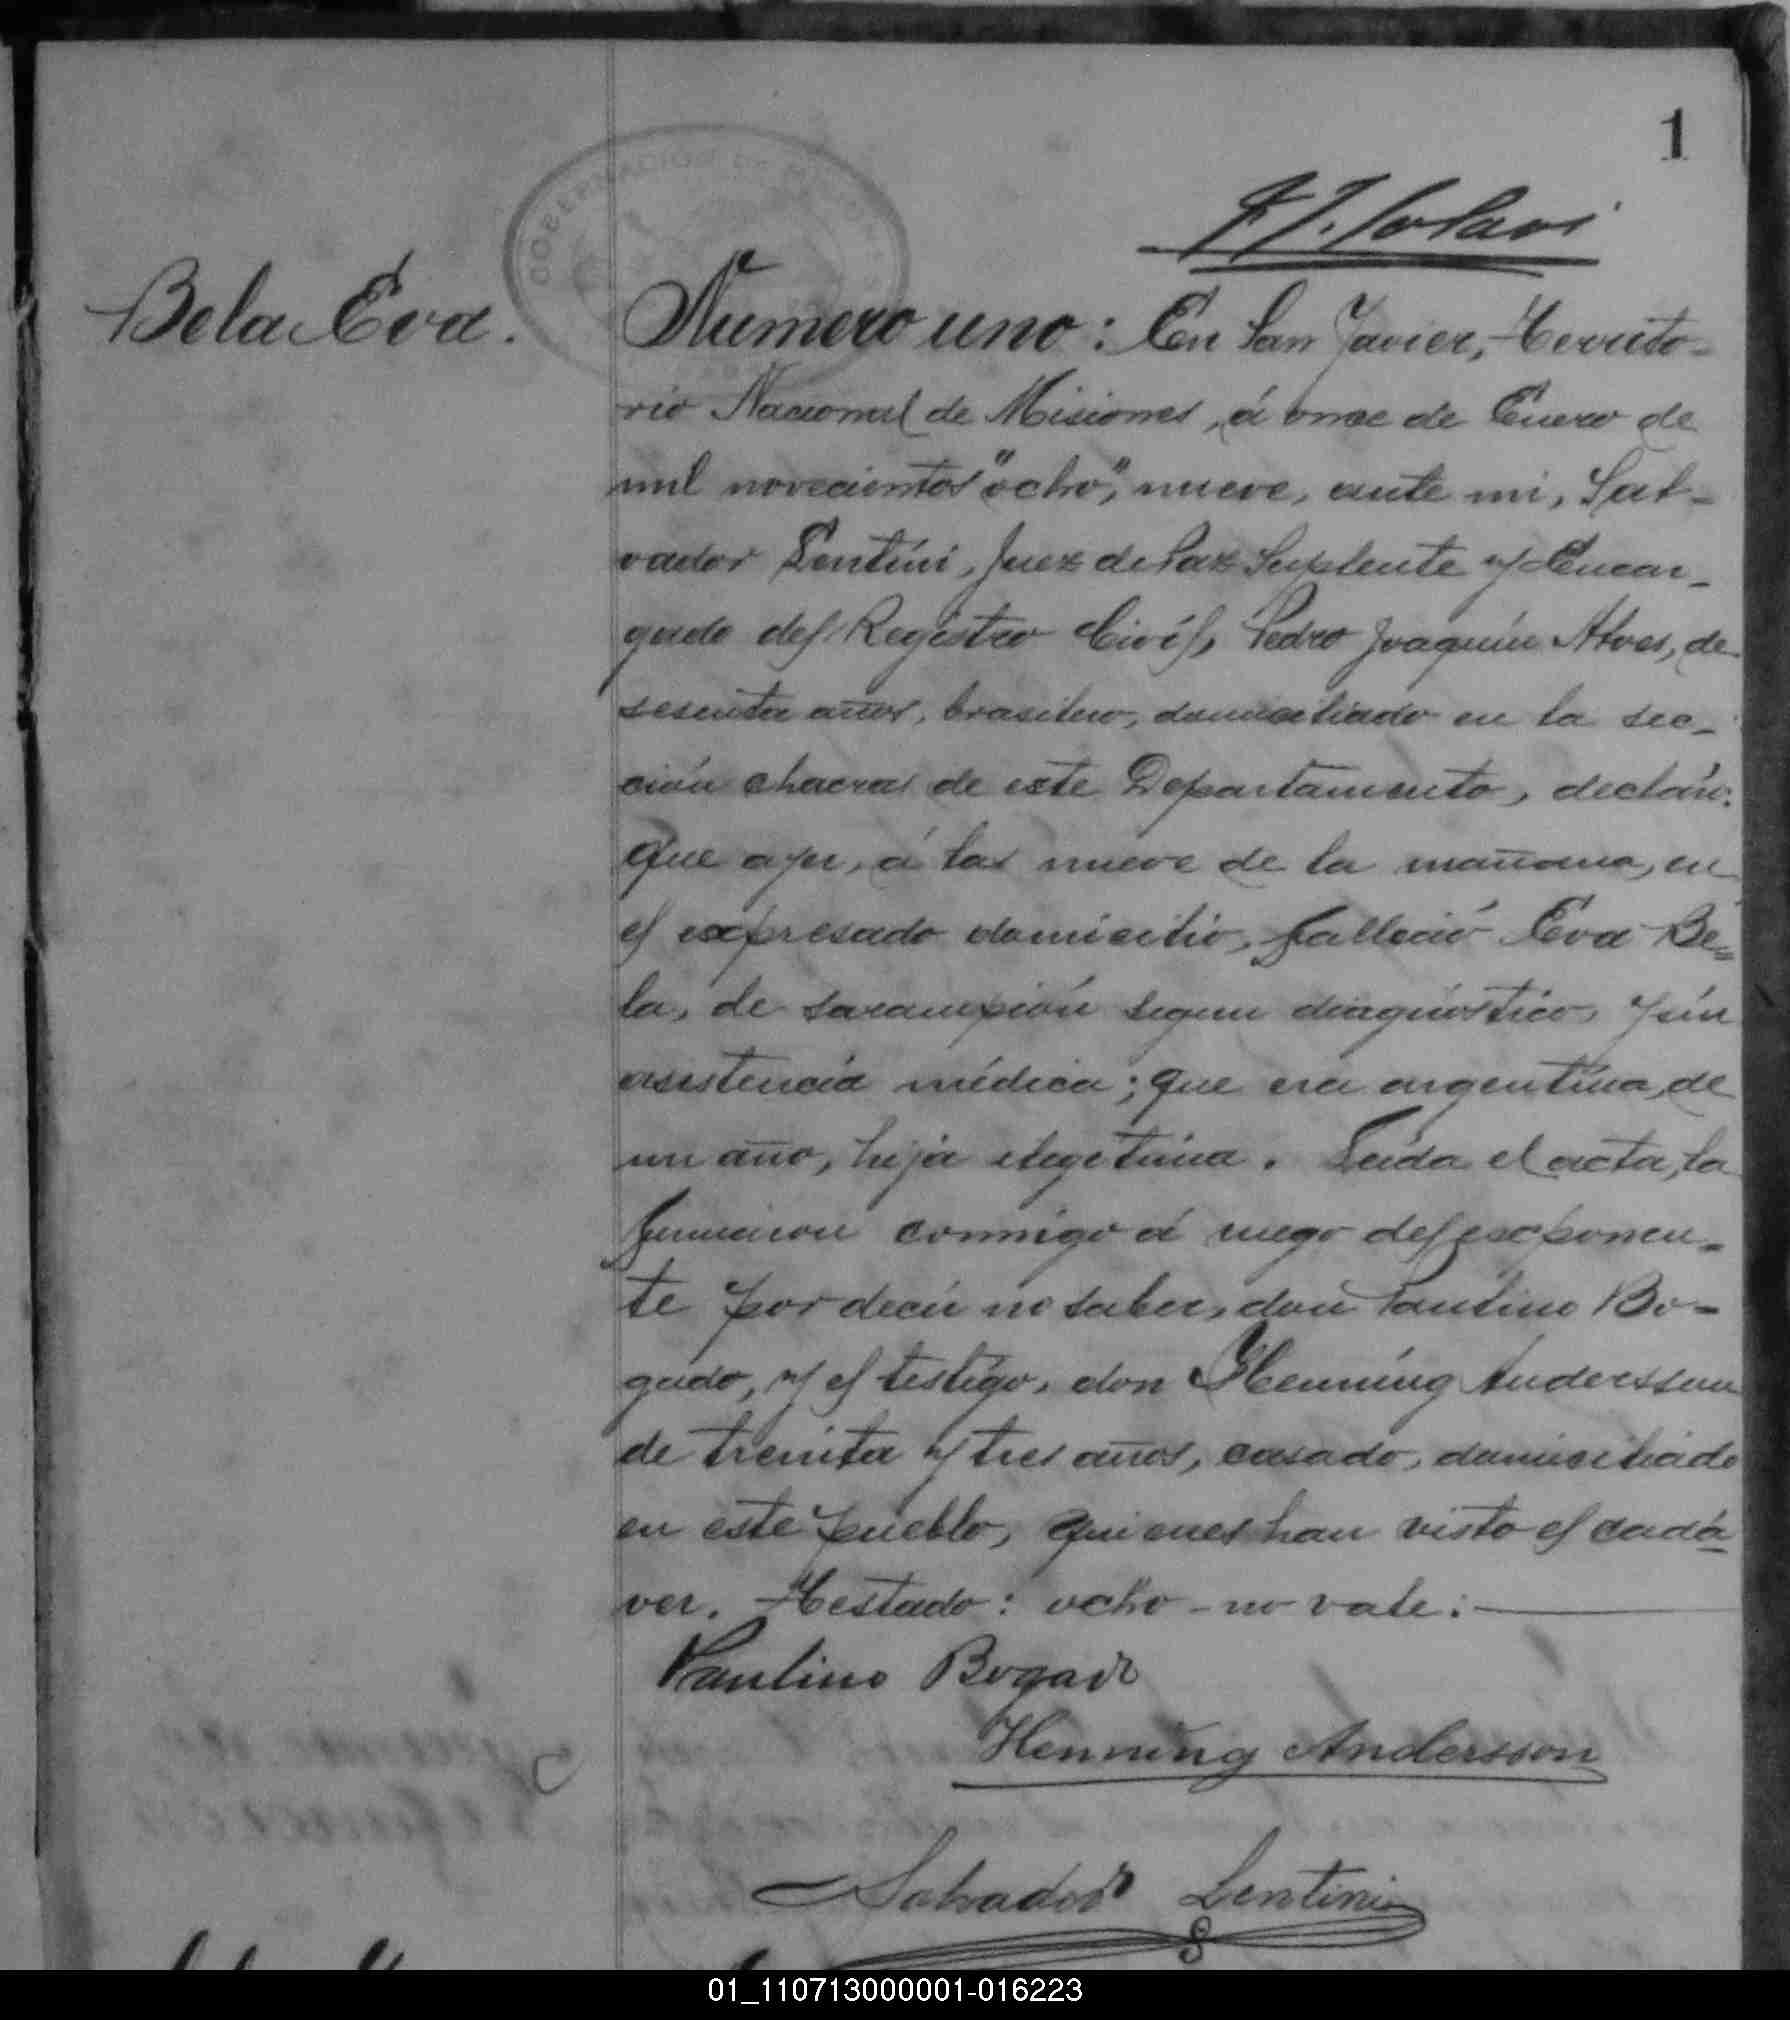 1
Bela Eva.
Numero uno: En San Javier, Territo-
rio Nacional de Misiones, á once de Enero de
mil novecientos "ocho", nueve, ante mi, Sal-
vador Lentini, Juez de Paz Suplente y Encar-
gado del Registro Civil, Pedro Joaquín Alves, de
sesenta años, brasilero, domiciliado en la sec-
ción chacras de este Departamento, declaró:
Que ayer, á las nueve de la mañana, en
el expresado domicilio, falleció Eva Be=
la, de sarampión segun diagnóstico, y sin
asistencia médica; que era argentina, de
un año, hija ilegitima. Leida el acta, la
firmaron conmigo á ruego del exponen-
te por decir no saber, don Paulino Bo-
gado, y el testigo, don Henning Anderssen
de treinta y tres años, casado, domiciliado
en este pueblo, quienes han visto el cadá-
ver. Testado: ocho - no vale:
Paulino Bogado
Henning Andersson
Salvador Lentini
01_110713000001-016223